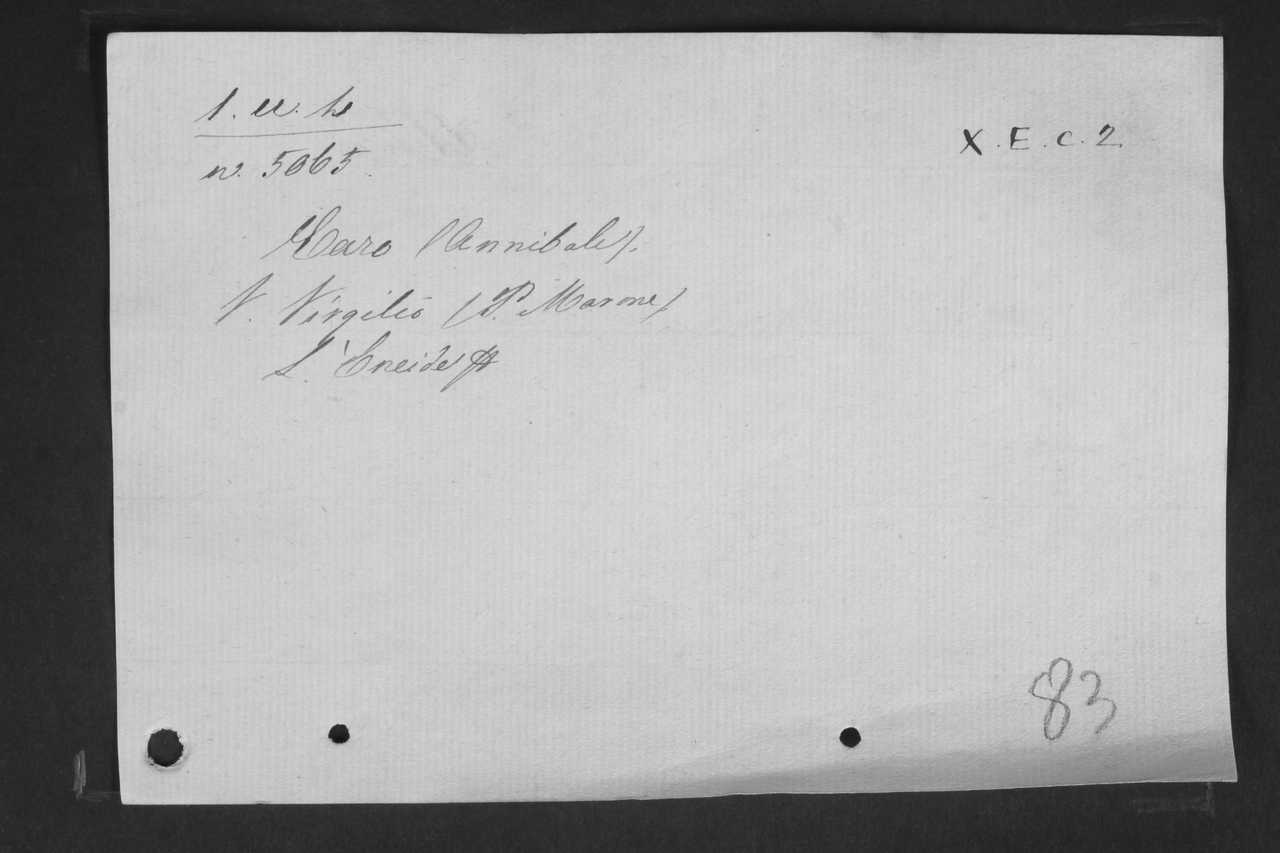 n. 5065.
X.E.c.2
Caro (Annibale).
V. Virgilio (P. Marone)
L'Eneide
83